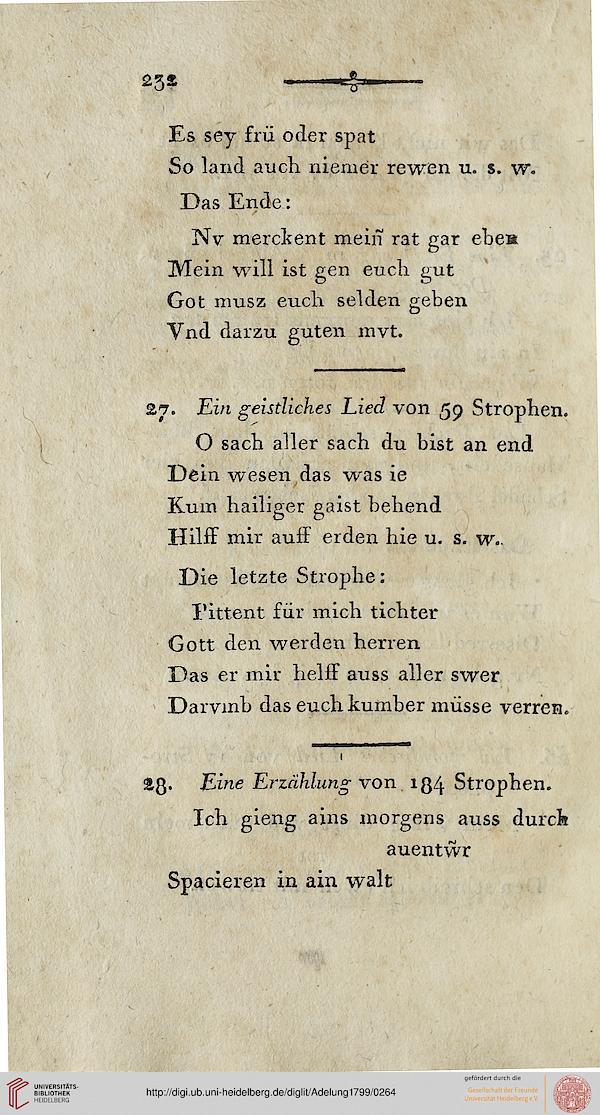 232
Es sey frü oder spat
So land auch niemer rewen u. s. w.
Das Ende:
Nv merckent mein̄ rat gar eben
Mein will ist gen euch gut
Got musz euch selden geben
Vnd darzu guten mvt.
27. Ein geistliches Lied von 59 Strophen.
O sach aller sach du bist an end
Dein wesen das was ie
Kum hailiger gaist behend
Hilff mir auff erden hie u. s. w.
Die letzte Strophe:
Pittent für mich tichter
Gott den werden herren
Das er mir helff auss aller swer
Darvmb das euch kumber müsse verren.
28. Eine Erzählung von 184 Strophen.
Ich gieng ains morgens auss durch
auentw̃r
Spacieren in ain walt
UNIVERSITÄTS-
BIBLIOTHEK
HEIDELBERG
http://digi.ub.uni-heidelberg.de/diglit/Adelung1799/0264
gefördert durch die
Gesellschaft der Freunde
Universität Heidelberg e.V.